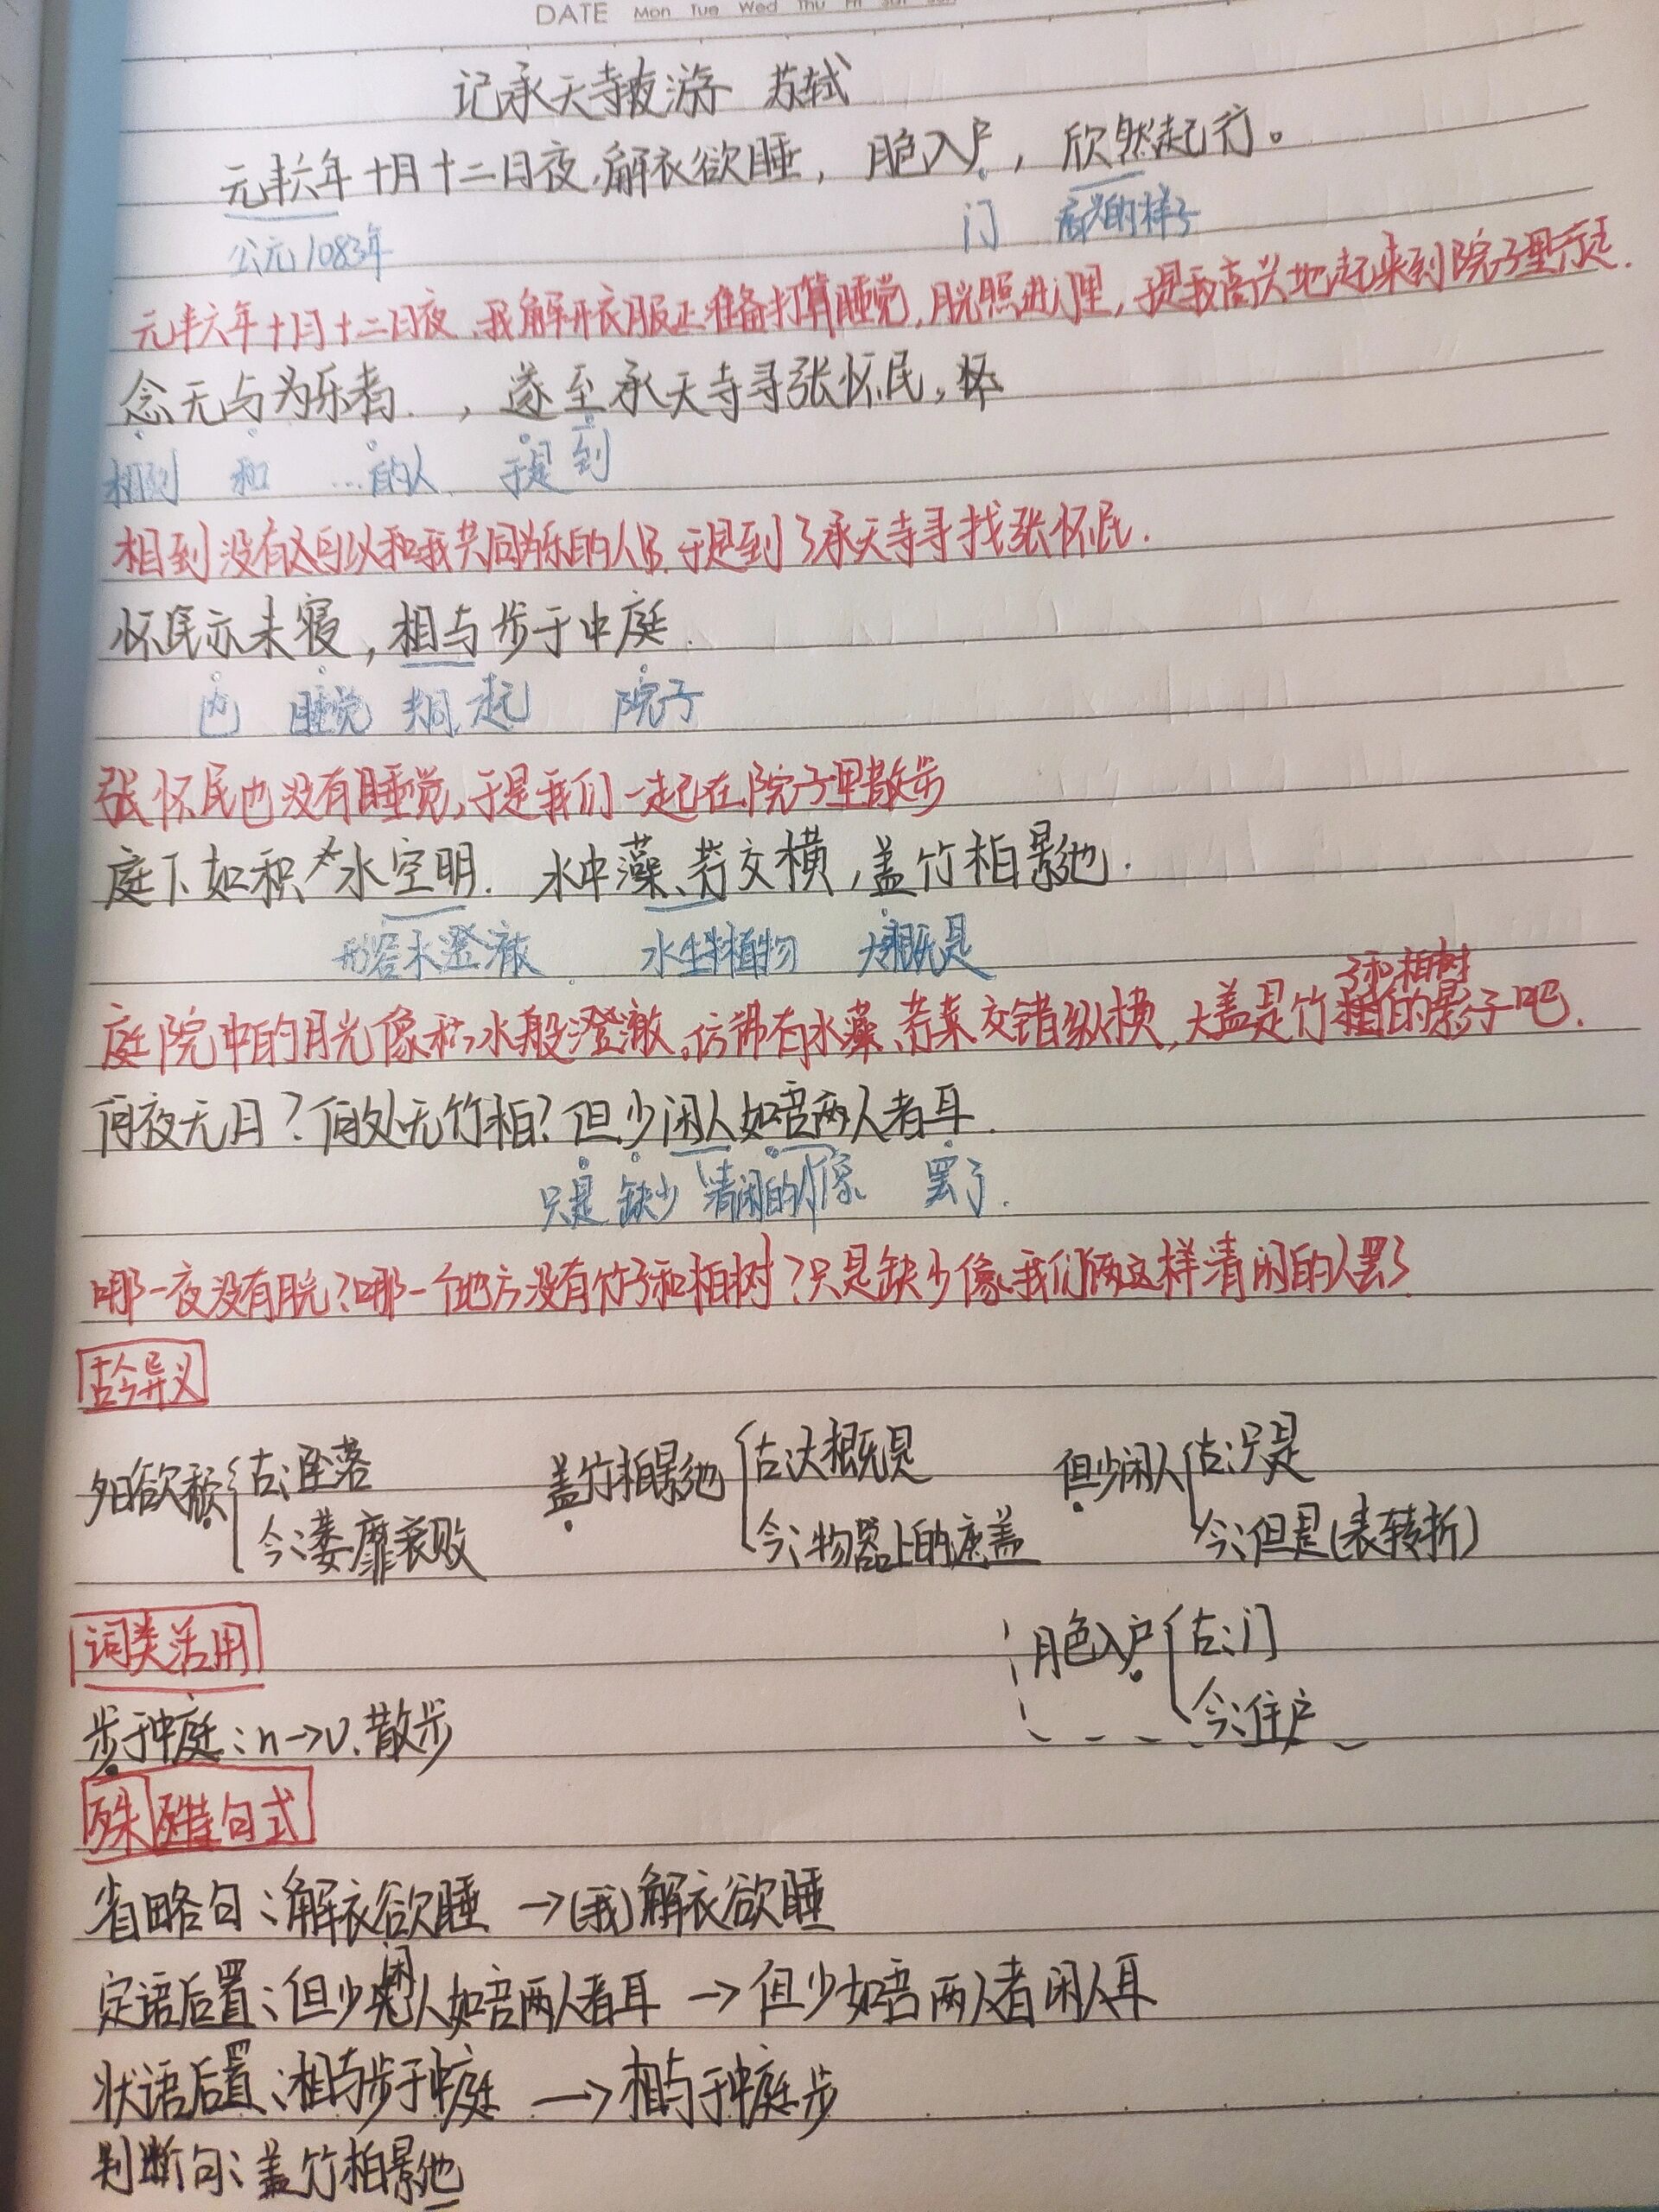 DATE Mon Tue Wed Thu Fri Sat Sun
记承天寺夜游 苏轼
元丰六年十月十二日夜,解衣欲睡，月色入户，欣然起行。
公元1083年 门 高兴的样子
元丰六年十月十二日夜,我解开衣服正准备打算睡觉,月光照进门里,于是我高兴地起来到院子里行走.
念无与为乐者.，遂至承天寺寻张怀民,
相到 和 …的人. 于是 到
相到没有可以和我共同为乐的人,于是到了承天寺寻找张怀民.
怀民亦未寝,相与步于中庭.
也 睡觉 共同,一起 院子
张怀民也没有睡觉,于是我们一起在院子里散步
庭下如积水空明. 水中藻、荇交横,盖竹柏影也.
形容水澄澈 水生植物 大概是
了和柏树
庭院中的月光像积水般澄澈。仿佛有水藻、荇菜交错纵横,大盖是竹的影子吧.
何夜无月?何处无竹柏?但少闲人如吾两人者耳.
只是 缺少 清闲的人 像 罢了.
哪一夜没有月光?哪一个地方没有竹子和柏树?只是缺少像我们俩这样清闲的人罢了
古今异义
夕日欲颓 古:坠落 盖竹柏影也 古:大概是 但少闲人 古:只是
今:萎靡衰败 今:物器上的遮盖 今:但是(表转折)
词类活用 月色入户 古:门
今:住户
步于中庭:n→v.散步
特殊句式
省略句:解衣欲睡 →(我)解衣欲睡
定语后置:但少闲人如吾两人者耳 →但少如吾两人者闲人耳
状语后置:相与步于中庭 →相与于中庭步
判断句:盖竹柏影也